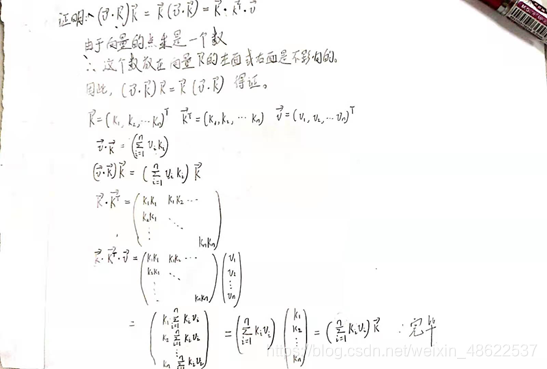 证明: (v⃗·k⃗)k⃗ = k⃗(v⃗·k⃗) = k⃗·k⃗ᵀ·v⃗
由于向量的点乘是一个数
∴ 这个数放在向量k⃗的左面或右面是不影响的。
因此, (v⃗·k⃗)k⃗ = k⃗(v⃗·k⃗) 得证。
k⃗ = (k₁, k₂, ⋯ kₙ)ᵀ k⃗ᵀ = (k₁, k₂, ⋯ kₙ) v⃗ = (v₁, v₂, ⋯ vₙ)ᵀ
v⃗·k⃗ = (∑ⁿᵢ₌₁ vᵢkᵢ)
(v⃗·k⃗)k⃗ = (∑ⁿᵢ₌₁ vᵢkᵢ) k⃗
k⃗·k⃗ᵀ = ( k₁k₁ k₁k₂ ⋯
k₂k₁ ⋱
⋮
kₙkₙ )
k⃗·k⃗ᵀ·v⃗ = ( k₁k₁ k₁k₂ ⋯
k₂k₁ ⋱
⋮
kₙkₙ ) ( v₁
v₂
⋮
vₙ )
= ( k₁∑ⁿᵢ₌₁kᵢvᵢ
k₂∑ⁿᵢ₌₁kᵢvᵢ
⋮
kₙ∑ⁿᵢ₌₁kᵢvᵢ ) = (∑ⁿᵢ₌₁kᵢvᵢ) ( k₁
k₂
⋮
kₙ ) = (∑ⁿᵢ₌₁kᵢvᵢ) k⃗ ∴完毕
https://blog.csdn.net/weixin_48622537